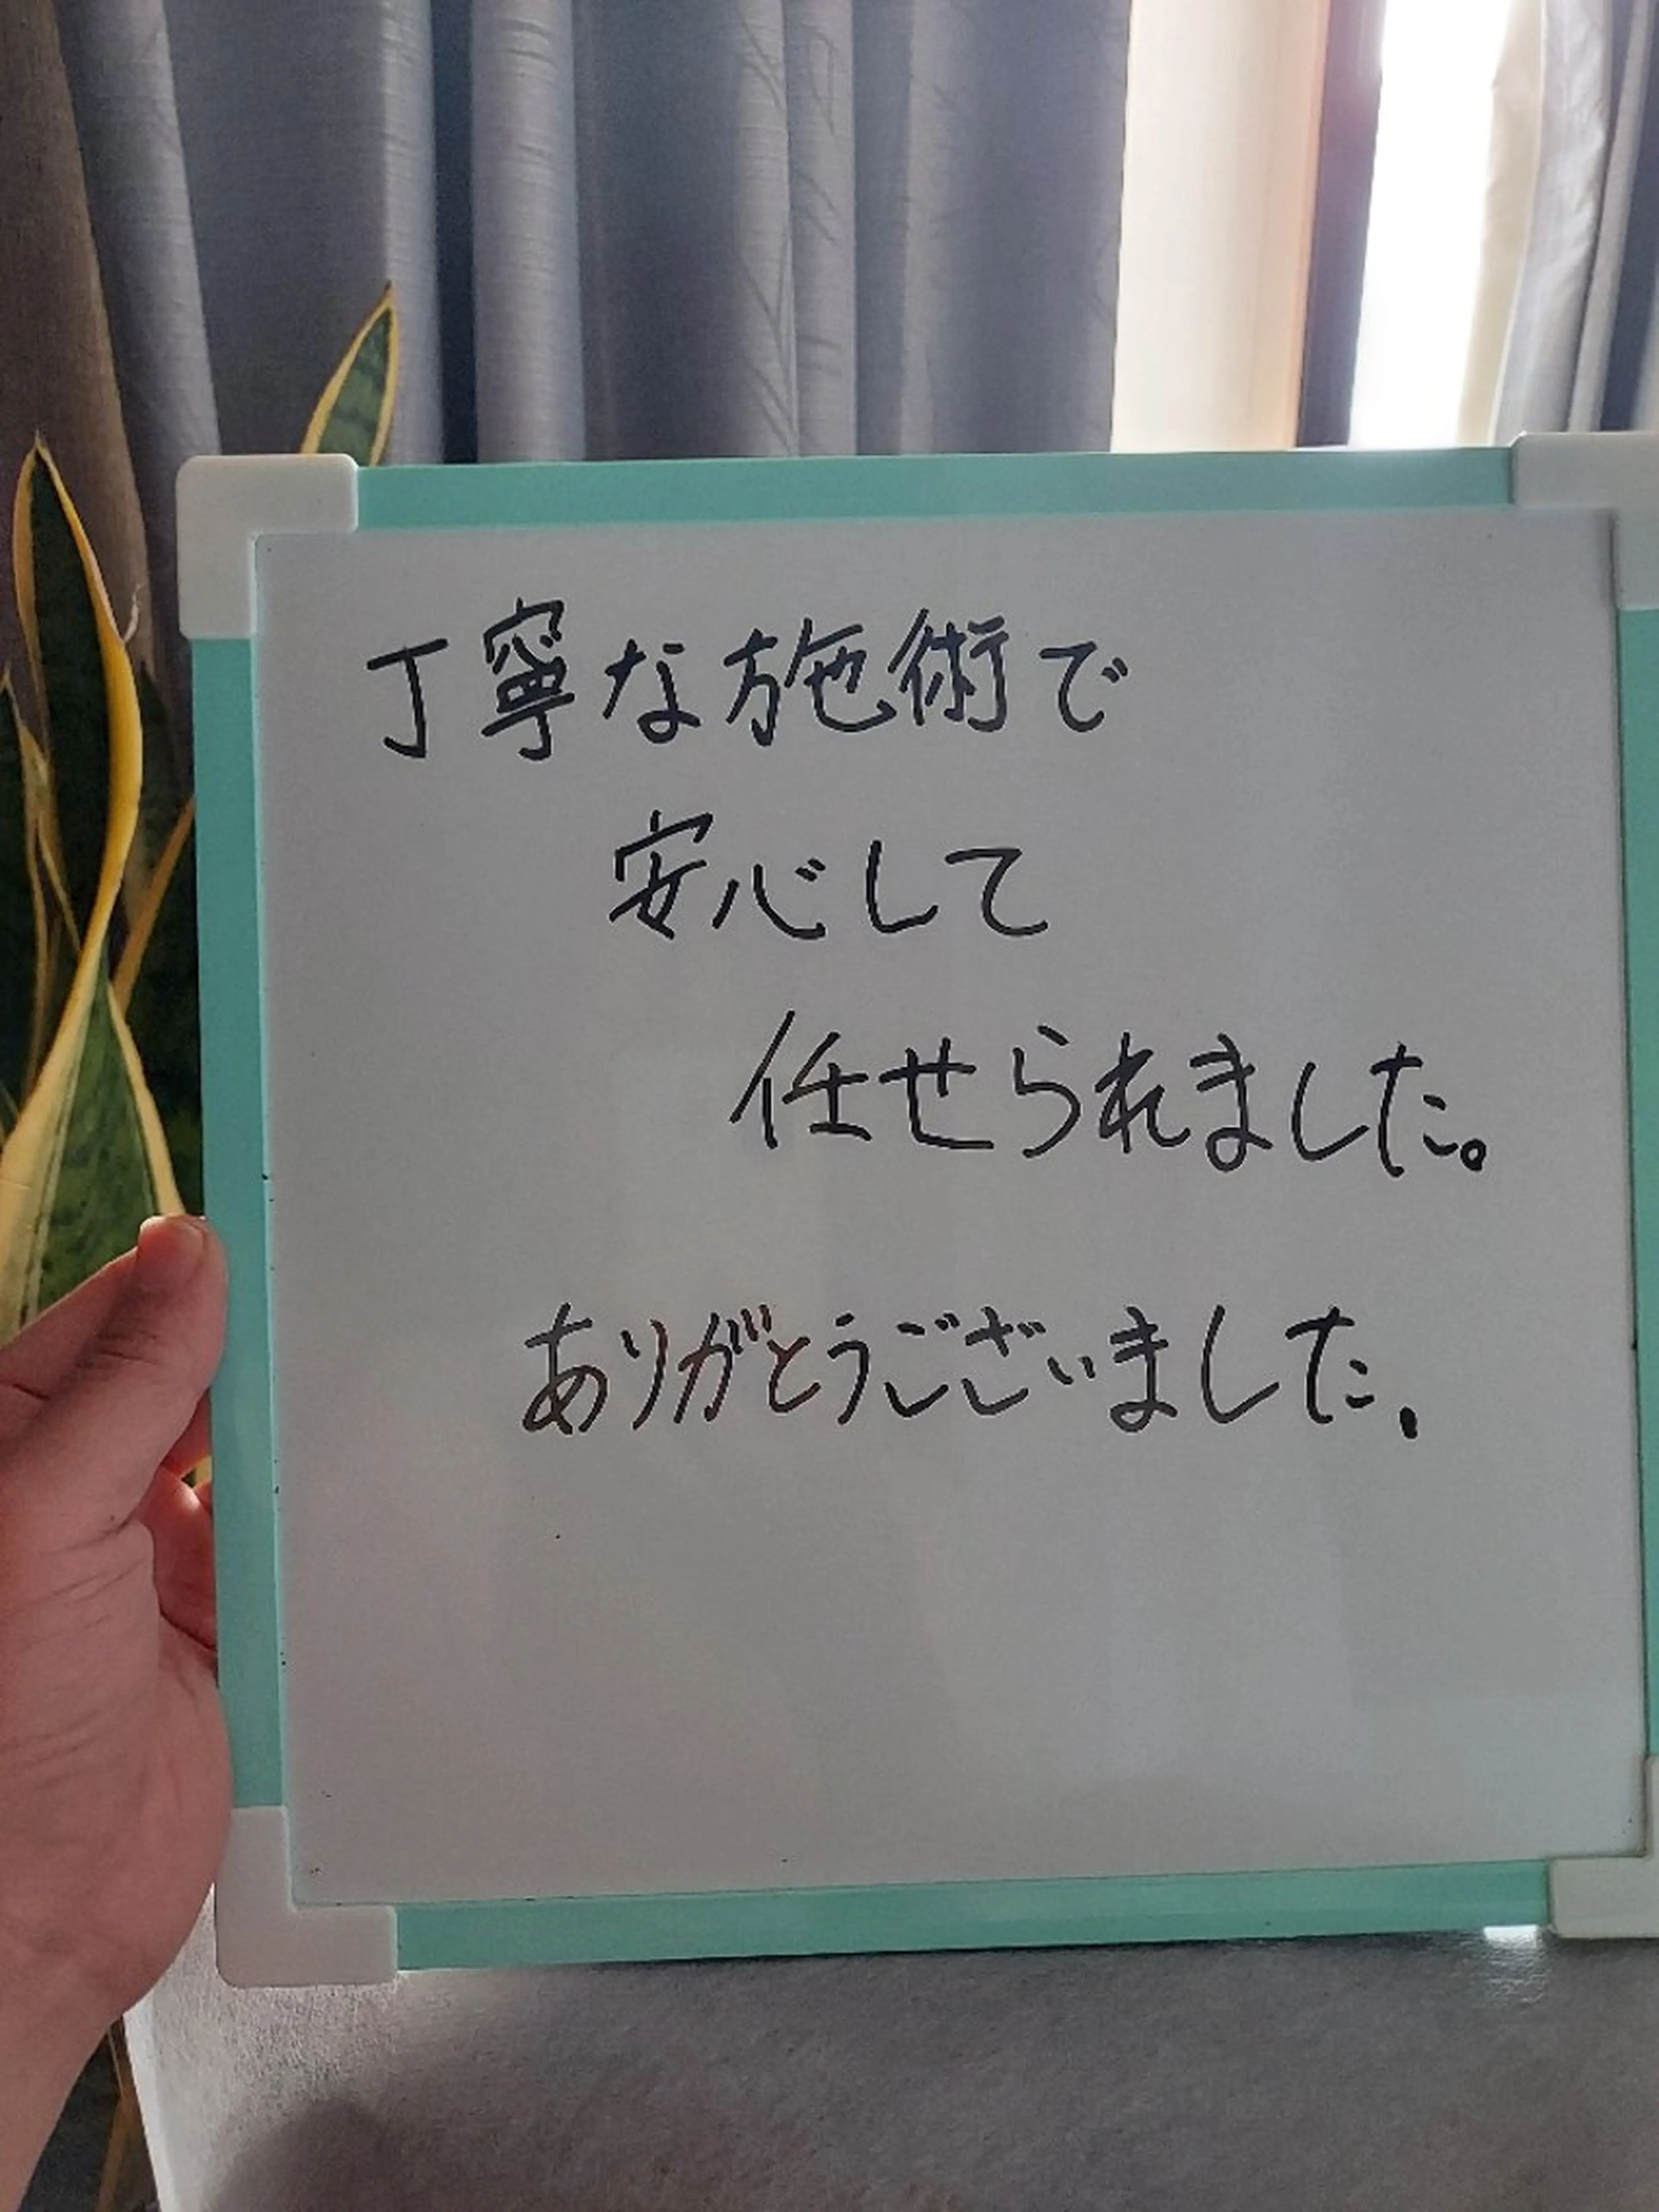 丁寧な施術で
安心して
任せられました。
ありがとうございました.